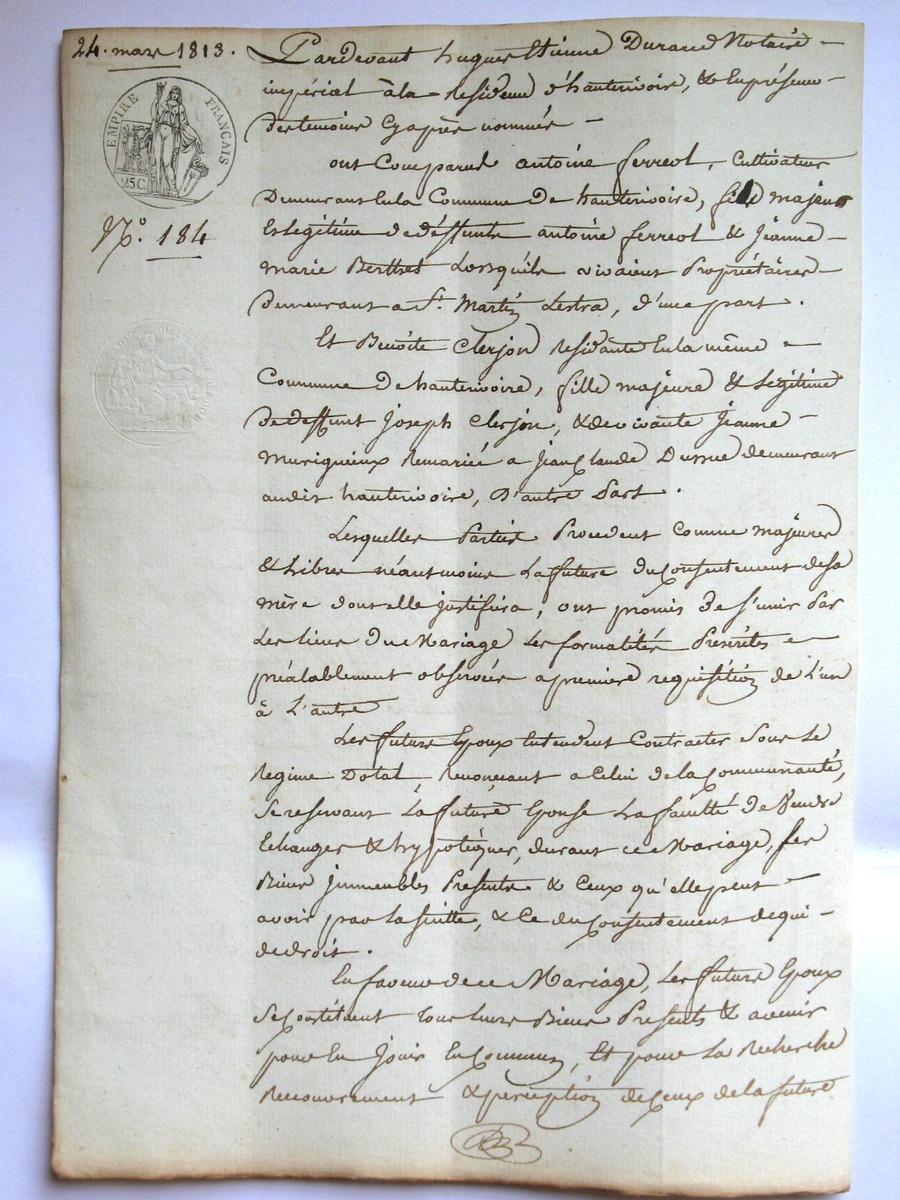 24. mars 1813.
EMPIRE FRANÇAIS
25 C.
N.º 184
Pardevant hugues Etienne Durand Notaire
impérial à la Residence d'hauterivoire, & En présence
des temoins cy après nommés
ont Comparu antoine ferreol, Cultivateur
Demeurant En la Commune De hauterivoire, fils majeur
Et Légitime de déffunts antoine ferreol & Jeanne
marie Berthet Lorsqu'ils vivaient Propriétaires
Demeurant a St. Martin Lestra, d'une part.
Et Benoîte Clerjon residante En la même
Commune De hauterivoire, fille majeure & Légitime
De deffunt Joseph Clerjon, & de vivante Jeanne
Murigneux Remariée a Jean Claude Dussue demeurant
audit hauterivoire, D'autre Part.
Lesquelles Parties Procedent Comme majeures
& Libres néantmoins La future Du Consentement de sa
mère dont elle justifiéra, ont promis De s'unir Par
Les liens du Mariage Les formalités Presérites
préalablement observées a première requisition de L'un
à L'autre
Les future Epoux Entendent Contracter Sous Le
Regime Dotal, Renonçant a Celui de la Communauté,
Se reservant La future Epouse La faculté De Vendre
Echanger & hypotéquer, durant ce Mariage, ses
Biens Immeubles Presents & Ceux qu'elle peut
avoir par La suitte, & Ce du Consentement de qui
de droit.
En faveur de ce Mariage, Les future Epoux
Se Constituent tous Leurs Biens Présents & avenir
pour En Jouir En Commun, Et pour La Recherche
Recouvrement & perception de Ceux de la future